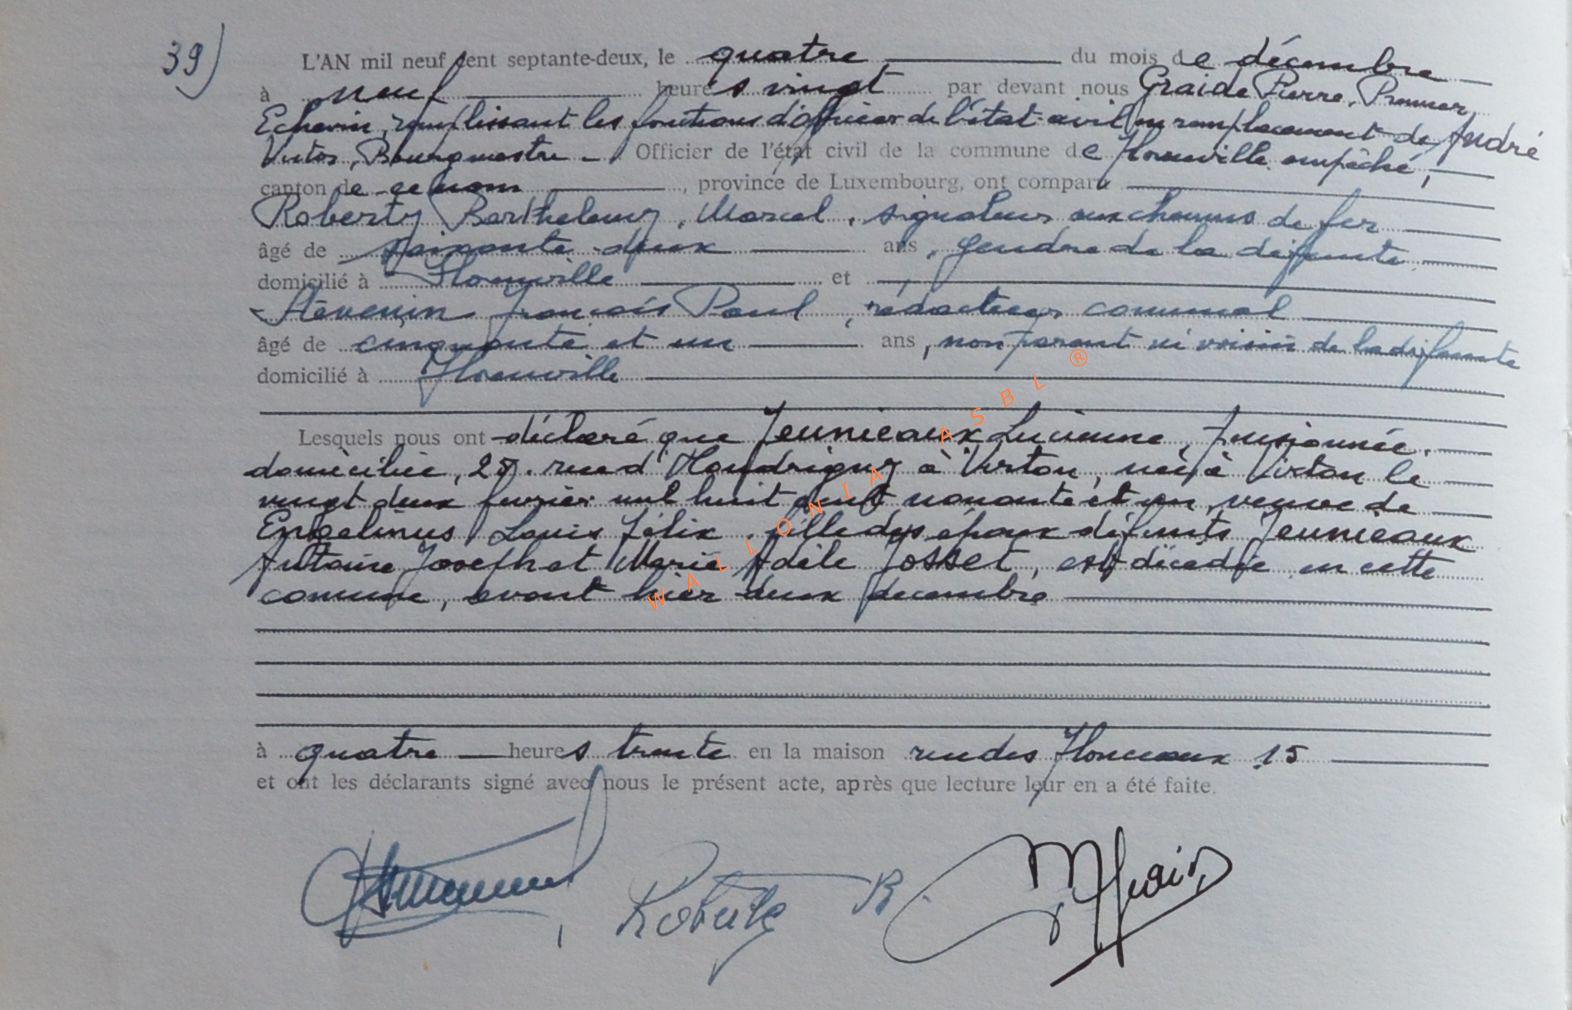 39)
L'AN mil neuf cent septante-deux, le quatre du mois de décembre
à neuf heures vingt par devant nous Graide Pierre, Premier
Echevin, remplissant les fonctions d'officier de l'état-civil en remplacement de André
Victor, Bourgmestre - Officier de l'état civil de la commune de Florenville empêché,
canton de ce nom, province de Luxembourg, ont comparu
Roberty Barthelemy, Marcel, signaleur aux chemins de fer
âgé de deux ans, gendre de la défunte
domicilié à Florenville et
François Paul, rédacteur communal
âgé de cinquante et un ans, non parent ni voisin de la défunte
domicilié à Florenville
Lesquels nous ont déclaré que Jeunieaux Lucienne, pensionnée,
domiciliée, rue d'Houdrigny à Virton, née à Virton le
vingt deux février mil huit cent nonante et un, veuve de
Engelinus Louis Félix, fille des époux défunts Jeunieaux
Antoine Josephat Marie Adèle Josset, est décédée en cette
commune, avant hier deux décembre
à quatre heures trente en la maison rue des 15
et ont les déclarants signé avec nous le présent acte, après que lecture leur en a été faite.
Roberty B.
WALLONIA ASBL ®